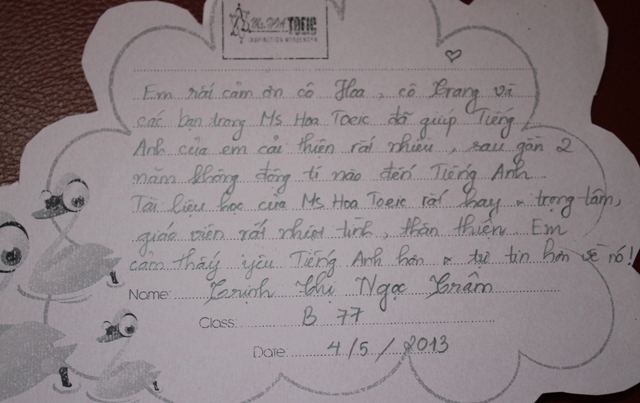 Ms. HOA TOEIC
Em rất cảm ơn cô Hoa, cô Trang và
các bạn trong Ms Hoa Toeic đã giúp Tiếng
Anh của em cải thiện rất nhiều, sau gần 2
năm không động tí nào đến Tiếng Anh
Tài liệu học của Ms Hoa Toeic rất hay & trọng tâm,
giáo viên rất nhiệt tình, thân thiện. Em
cảm thấy yêu Tiếng Anh hơn & tự tin hơn về nó!
Name: Trịnh Thị Ngọc Trâm
Class: B 77
Date 4/5/2013